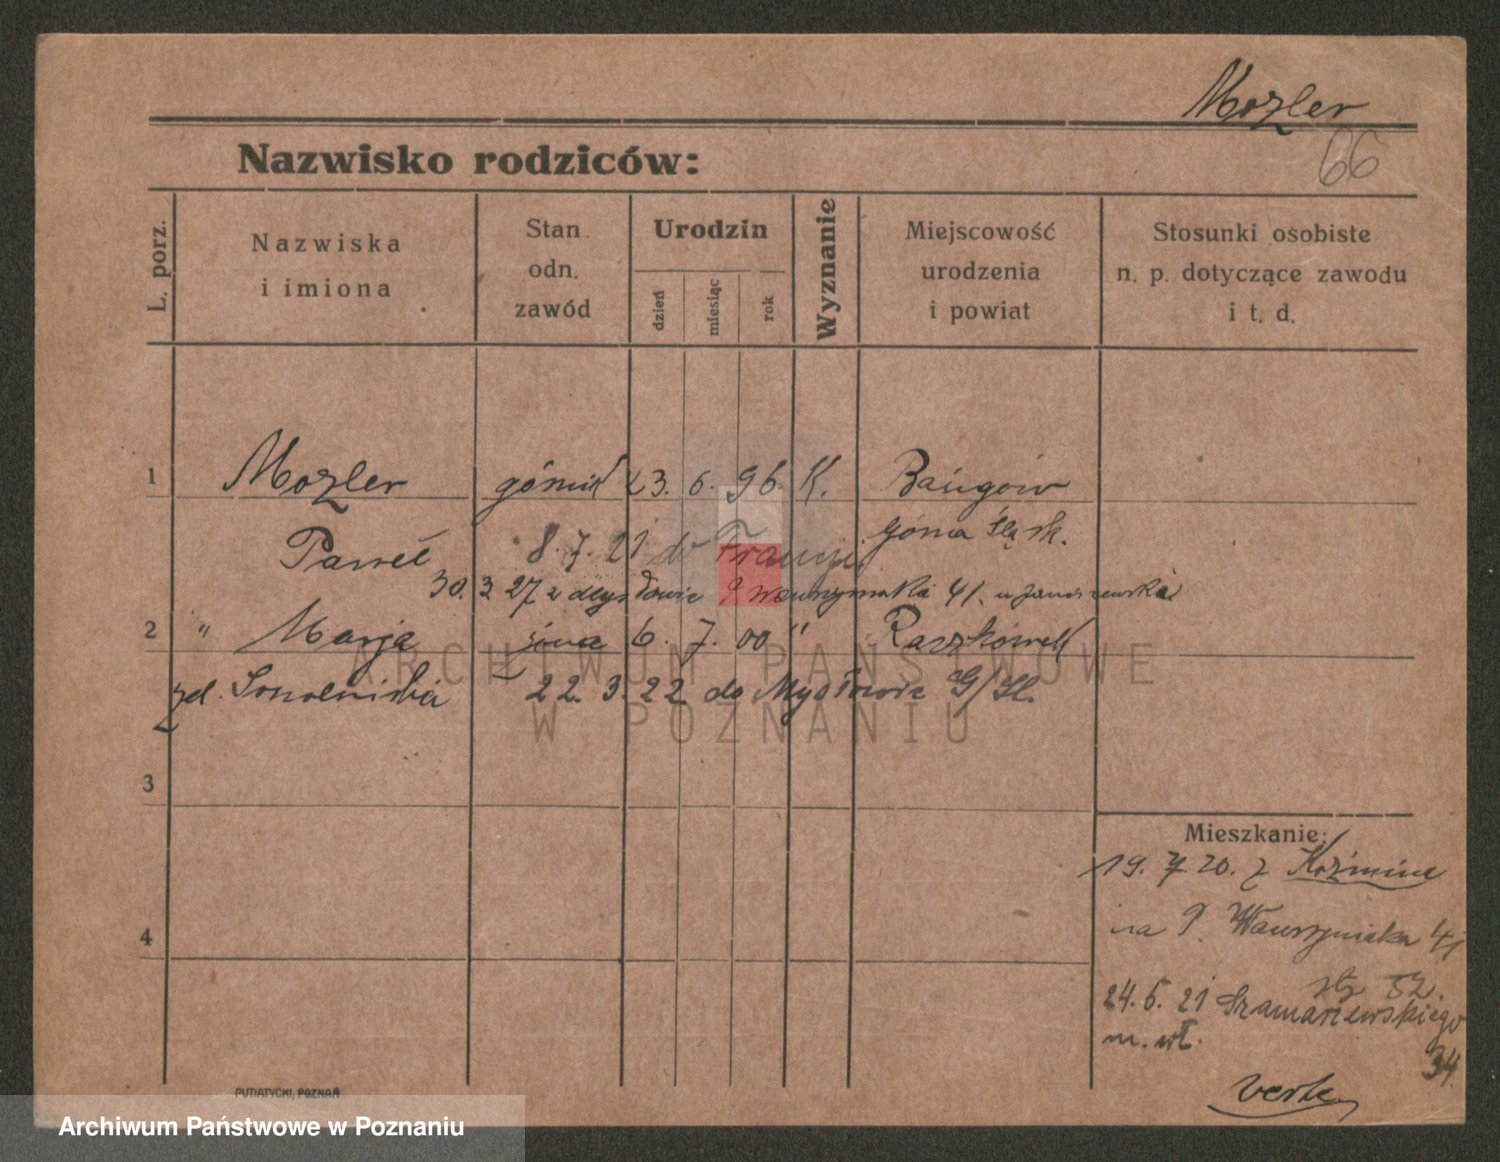 Mozler
66
Nazwisko rodziców:
L. porz.
Nazwiska
i imiona
Stan
odn.
zawód
Urodzin
dzień
miesiąc
rok
Wyznanie
Miejscowość
urodzenia
i powiat
Stosunki osobiste
n. p. dotyczące zawodu
i t. d.
1 Mozler górnik 23. 6. 96. K. Bańgów
Paweł 8. 7. 21 do Francji Górna Śląsk.
30. 3 27 z Mysłowic P. Wawrzyniaka 41. u Januszewska
2 " Marja żona 6. 7. 00 " Raszkówek
zd. 22. 3. 22. do Mysłowic G/Śl.
3
4
Mieszkanie:
19. 7. 20. z Koźmina
na P. Wawrzyniaka 41
24. 6. 21 Szamarzewskiego
34.
m. wł.
verte
PUTIATYCKI, POZNAŃ
ARCHIWUM PAŃSTWOWE
W POZNANIU
Archiwum Państwowe w Poznaniu